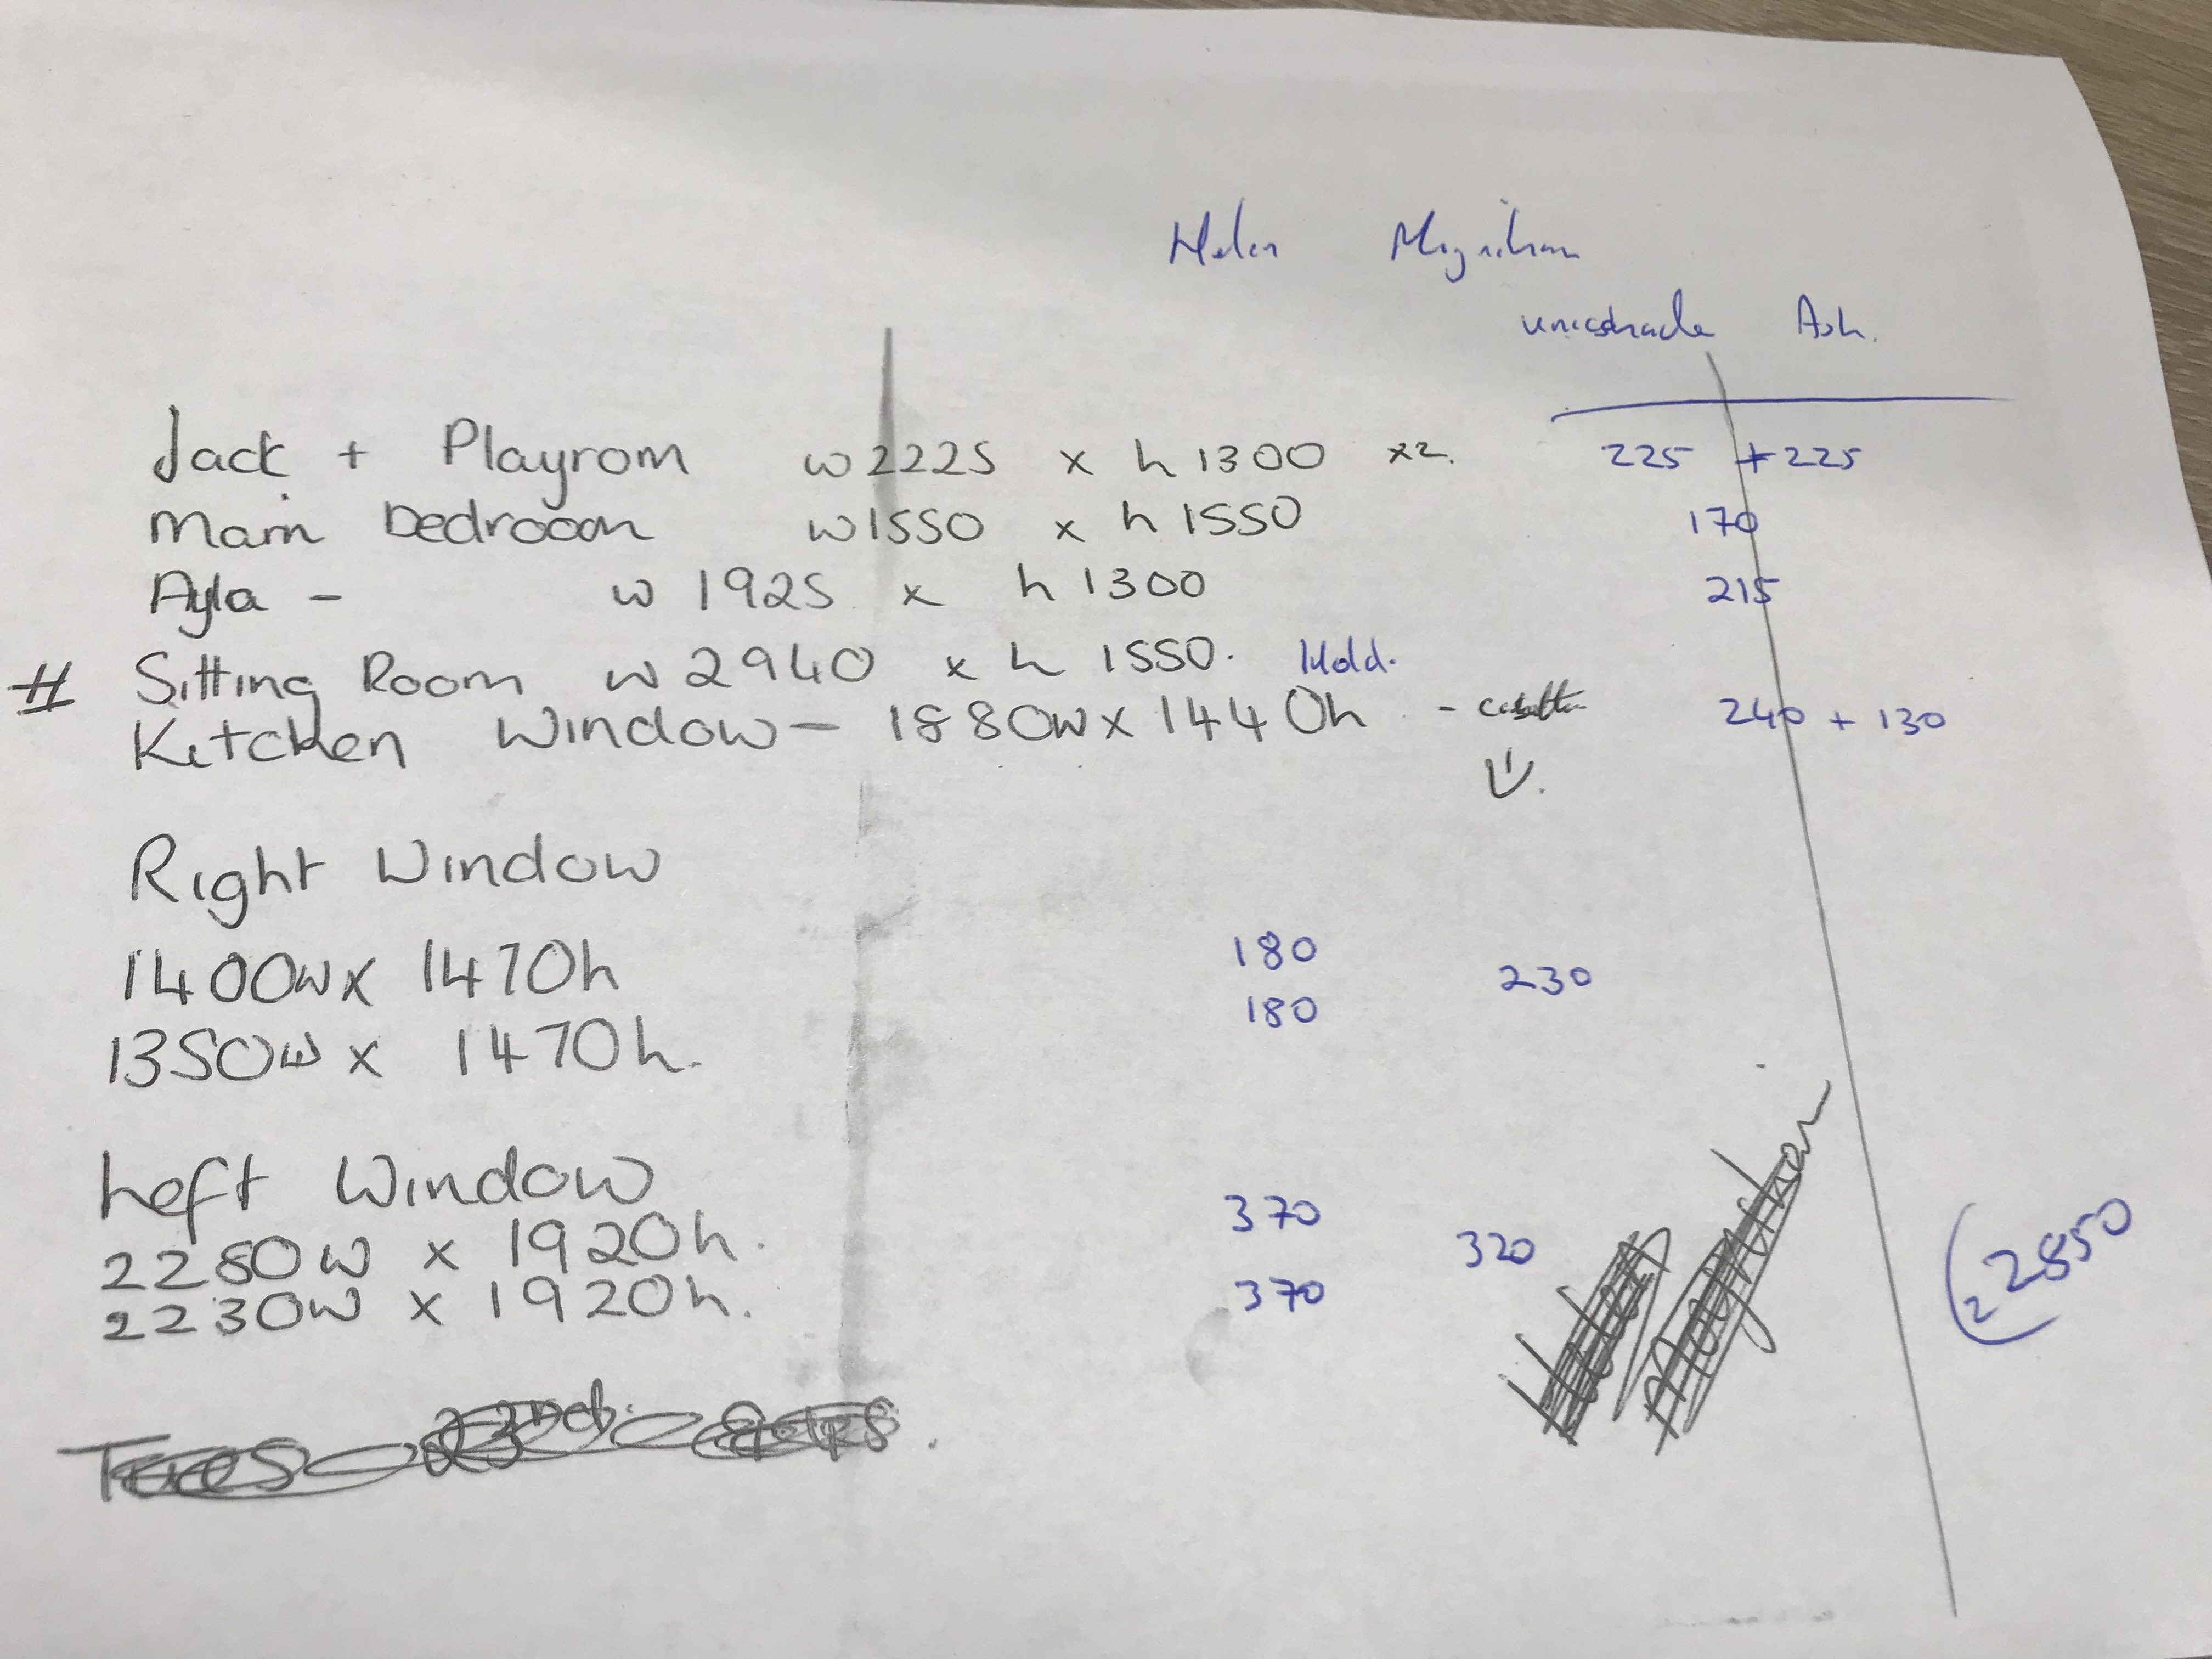 Helen Moynihan
unicshade Ash.
Jack + Playrom w2225 x h1300 x2. 225 + 225
Main bedrooom w1550 x h1550 170
Ayla - w 1925 x h1300 215
# Sitting Room w 2940 x h 1550. Hold.
Kitchen Window - 1880w x 1440h - 240 + 130
Right Window
1400w x 1470h 180 230
1350w x 1470h. 180
Left Window
2280w x 1920h. 370 320
2230w x 1920h. 370
2850